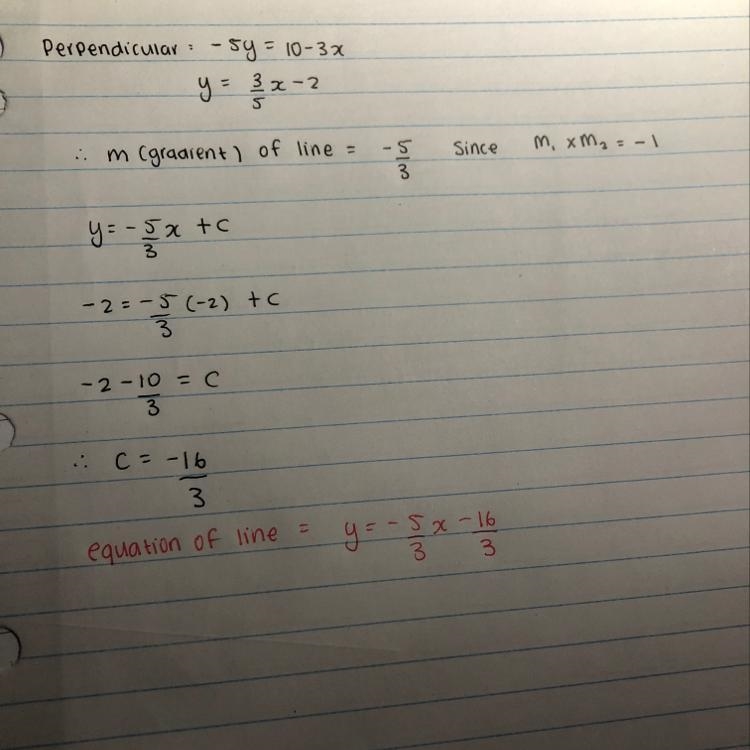 Perpendicular: -5y = 10-3x
y = 3/5 x - 2
∴ m (gradient) of line = -5/3 since m₁ x m₂ = -1
y = -5/3 x + c
-2 = -5/3 (-2) + c
-2 - 10/3 = c
∴ c = -16/3
equation of line = y = -5/3 x - 16/3